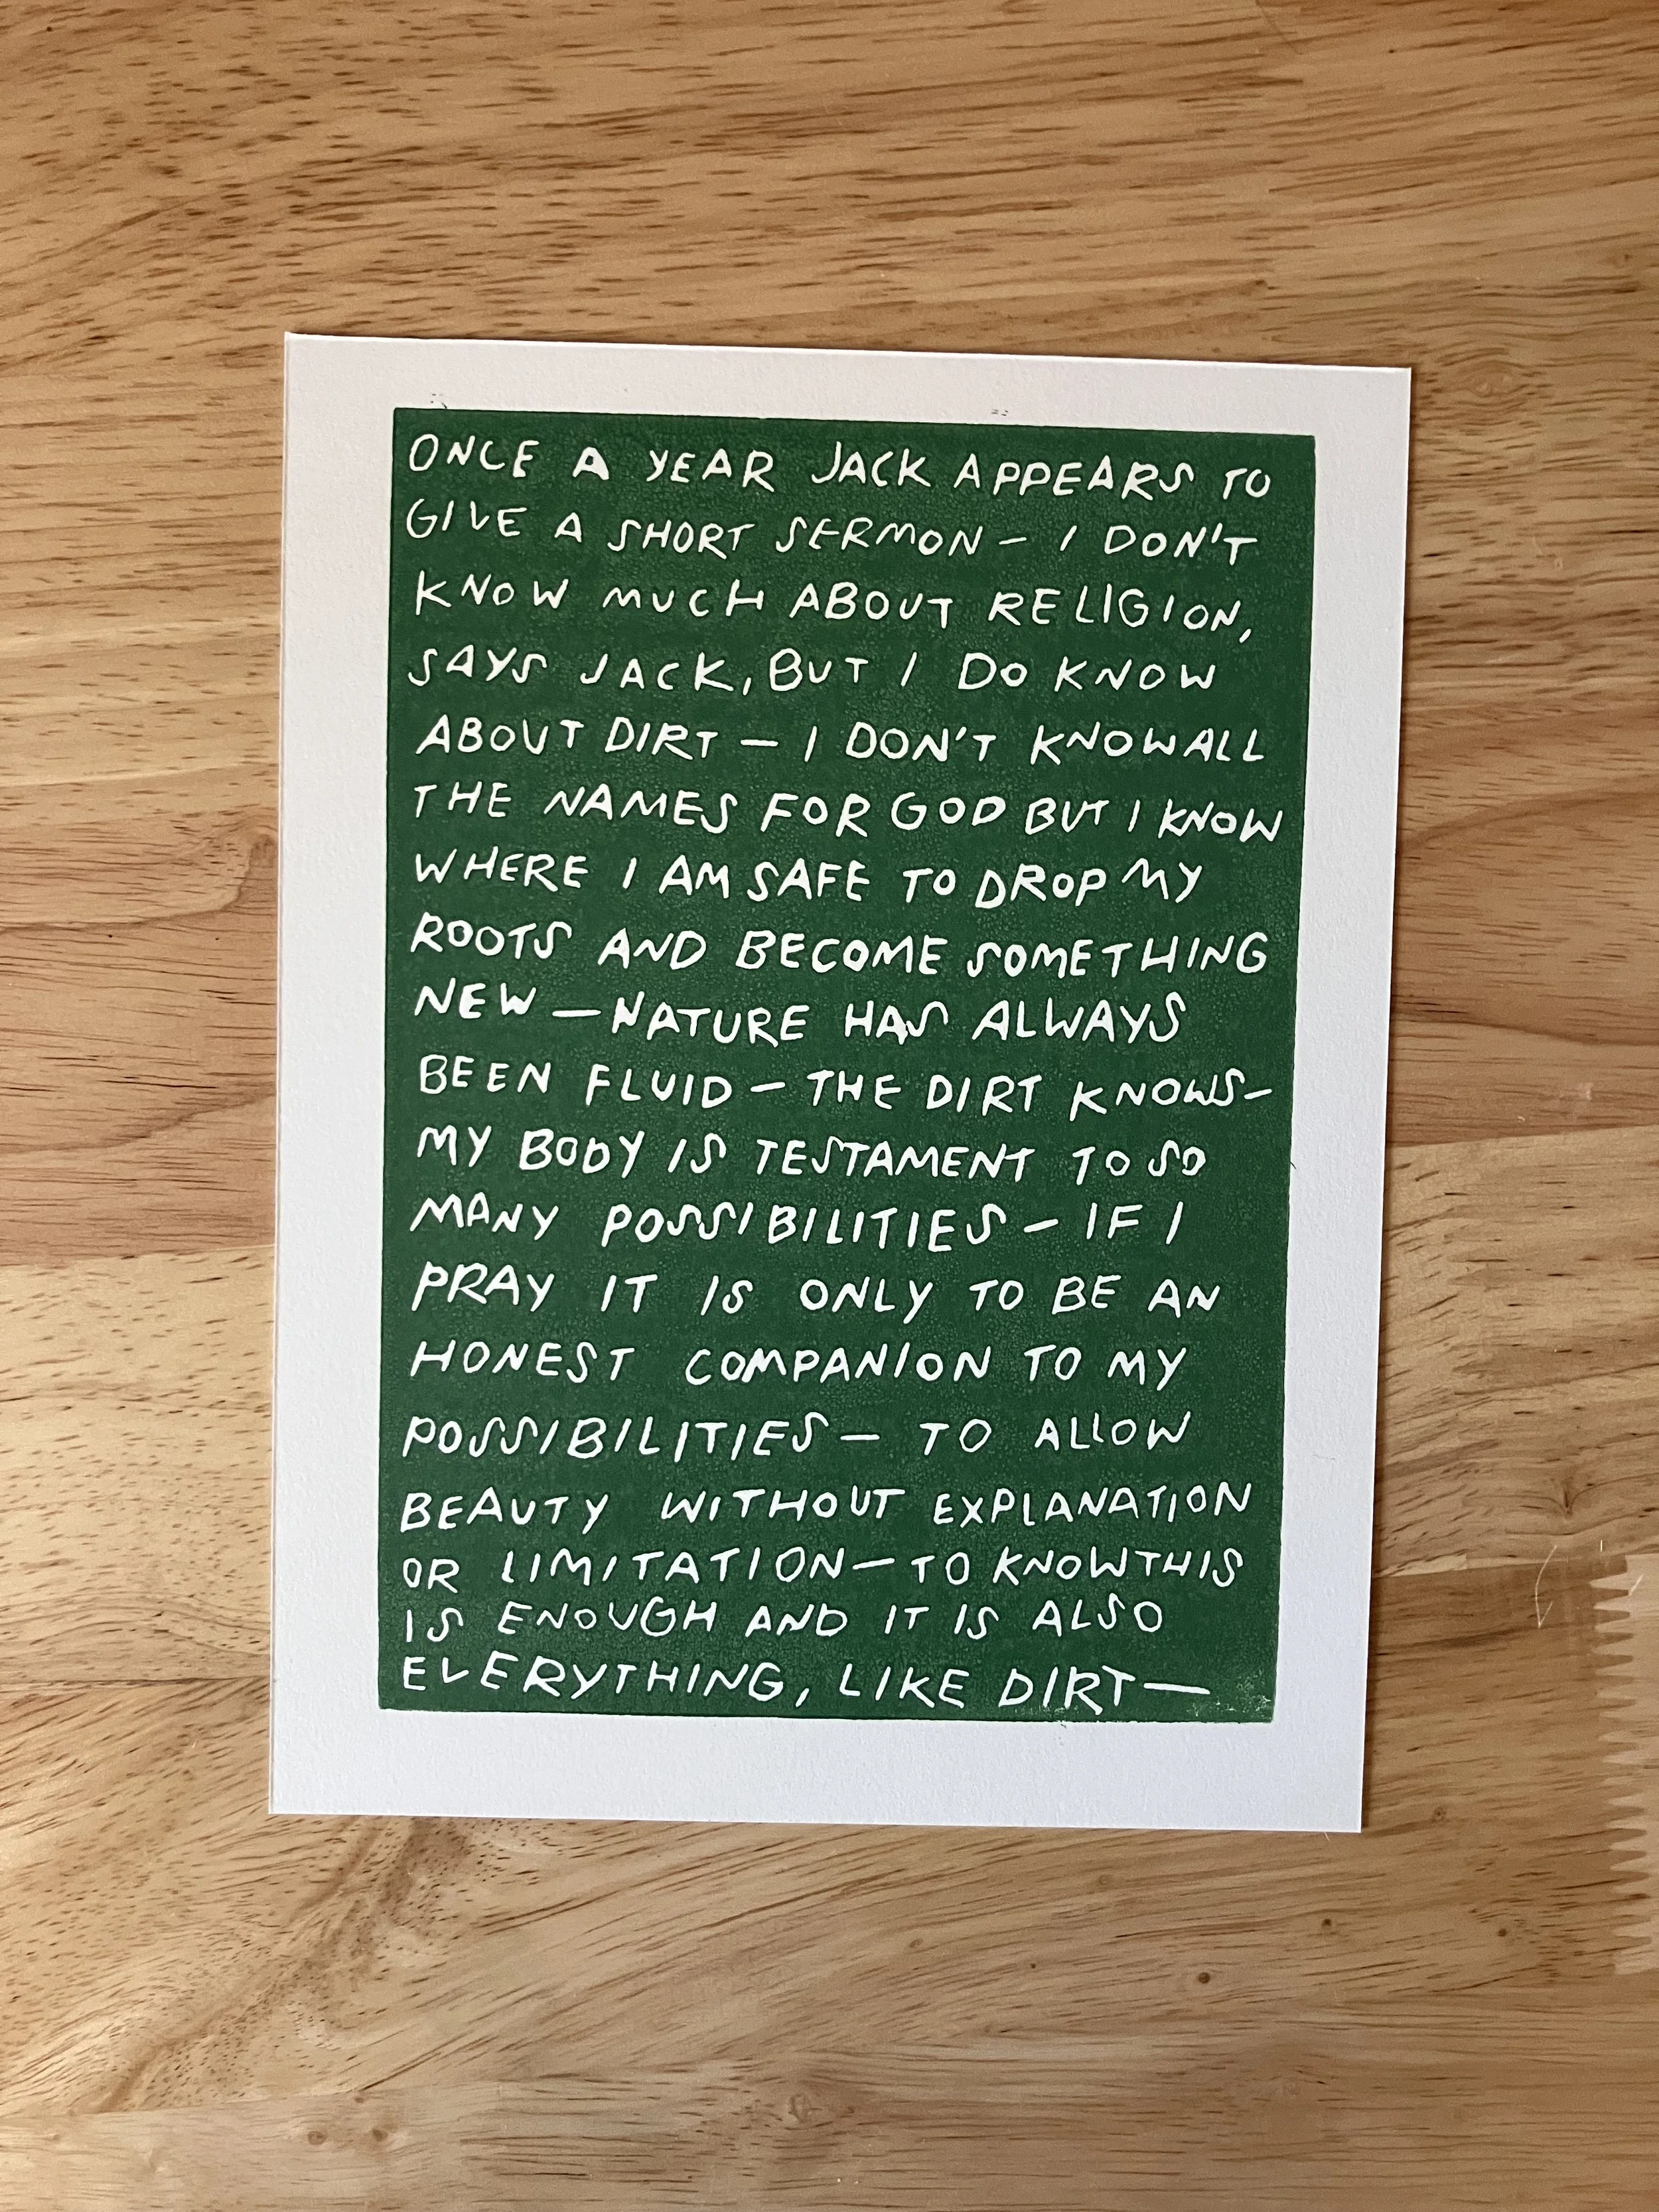 ONCE A YEAR JACK APPEARS TO
GIVE A SHORT SERMON – I DON'T
KNOW MUCH ABOUT RELIGION,
SAYS JACK, BUT I DO KNOW
ABOUT DIRT – I DON'T KNOW ALL
THE NAMES FOR GOD BUT I KNOW
WHERE I AM SAFE TO DROP MY
ROOTS AND BECOME SOMETHING
NEW – NATURE HAS ALWAYS
BEEN FLUID – THE DIRT KNOWS –
MY BODY IS TESTAMENT TO SO
MANY POSSIBILITIES – IF I
PRAY IT IS ONLY TO BE AN
HONEST COMPANION TO MY
POSSIBILITIES – TO ALLOW
BEAUTY WITHOUT EXPLANATION
OR LIMITATION – TO KNOW THIS
IS ENOUGH AND IT IS ALSO
EVERYTHING, LIKE DIRT –